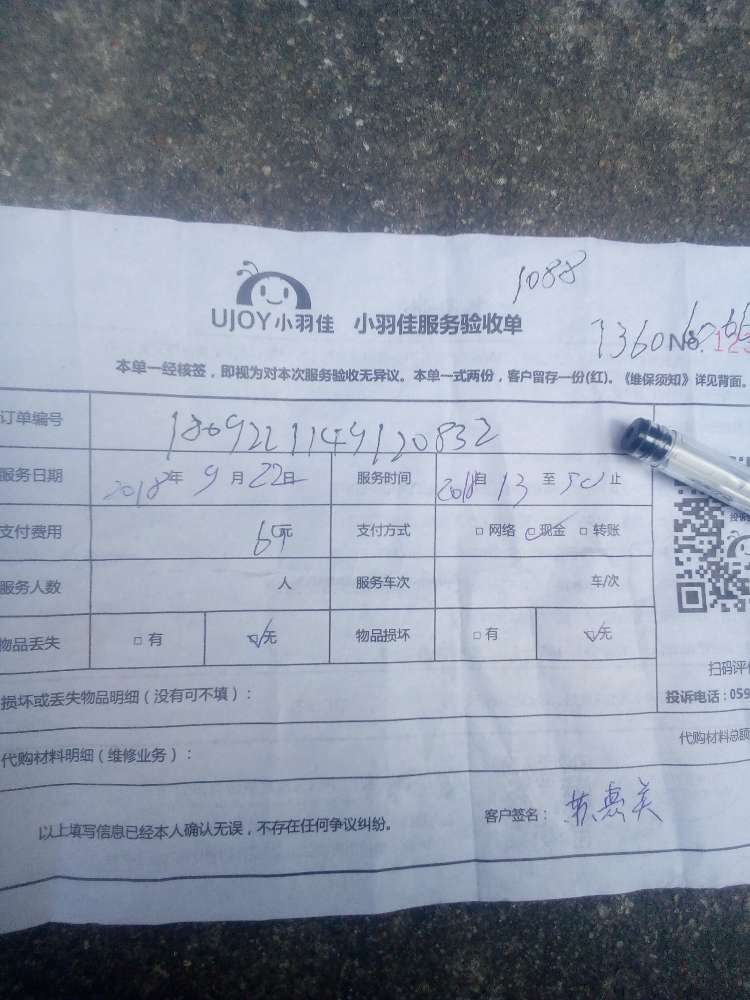 1088
UJOY小羽佳 小羽佳服务验收单
1360 No.
本单一经核签，即视为对本次服务验收无异议。本单一式两份，客户留存一份(红)。《维保须知》详见背面。
订单编号 1809221149120832
服务日期 2018年9月22日 服务时间 2018自13至50止
支付费用 69元 支付方式 □网络 ☑现金 □转账
服务人数 人 服务车次 车/次
物品丢失 □有 ☑无 物品损坏 □有 ☑无
扫码评
损坏或丢失物品明细（没有可不填）： 投诉电话：059
代购材料明细（维修业务）： 代购材料总额
以上填写信息已经本人确认无误，不存在任何争议纠纷。 客户签名：苏惠美